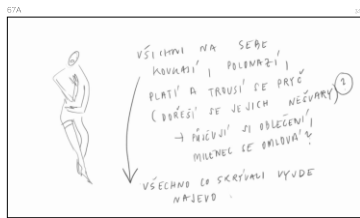 67A
VŠICHNI NA SEBE
KOUKAJÍ, POLONAZÍ,
PLATÍ A TROUSÍ SE PRYČ
(DOŘEŠÍ SE JEJICH NEŠVARY) 1
→ PŮJČUJÍ SI OBLEČENÍ,
MILENEC SE OMLOUVÁ?
VŠECHNO CO SKRÝVALI VYJDE
NAJEVO.